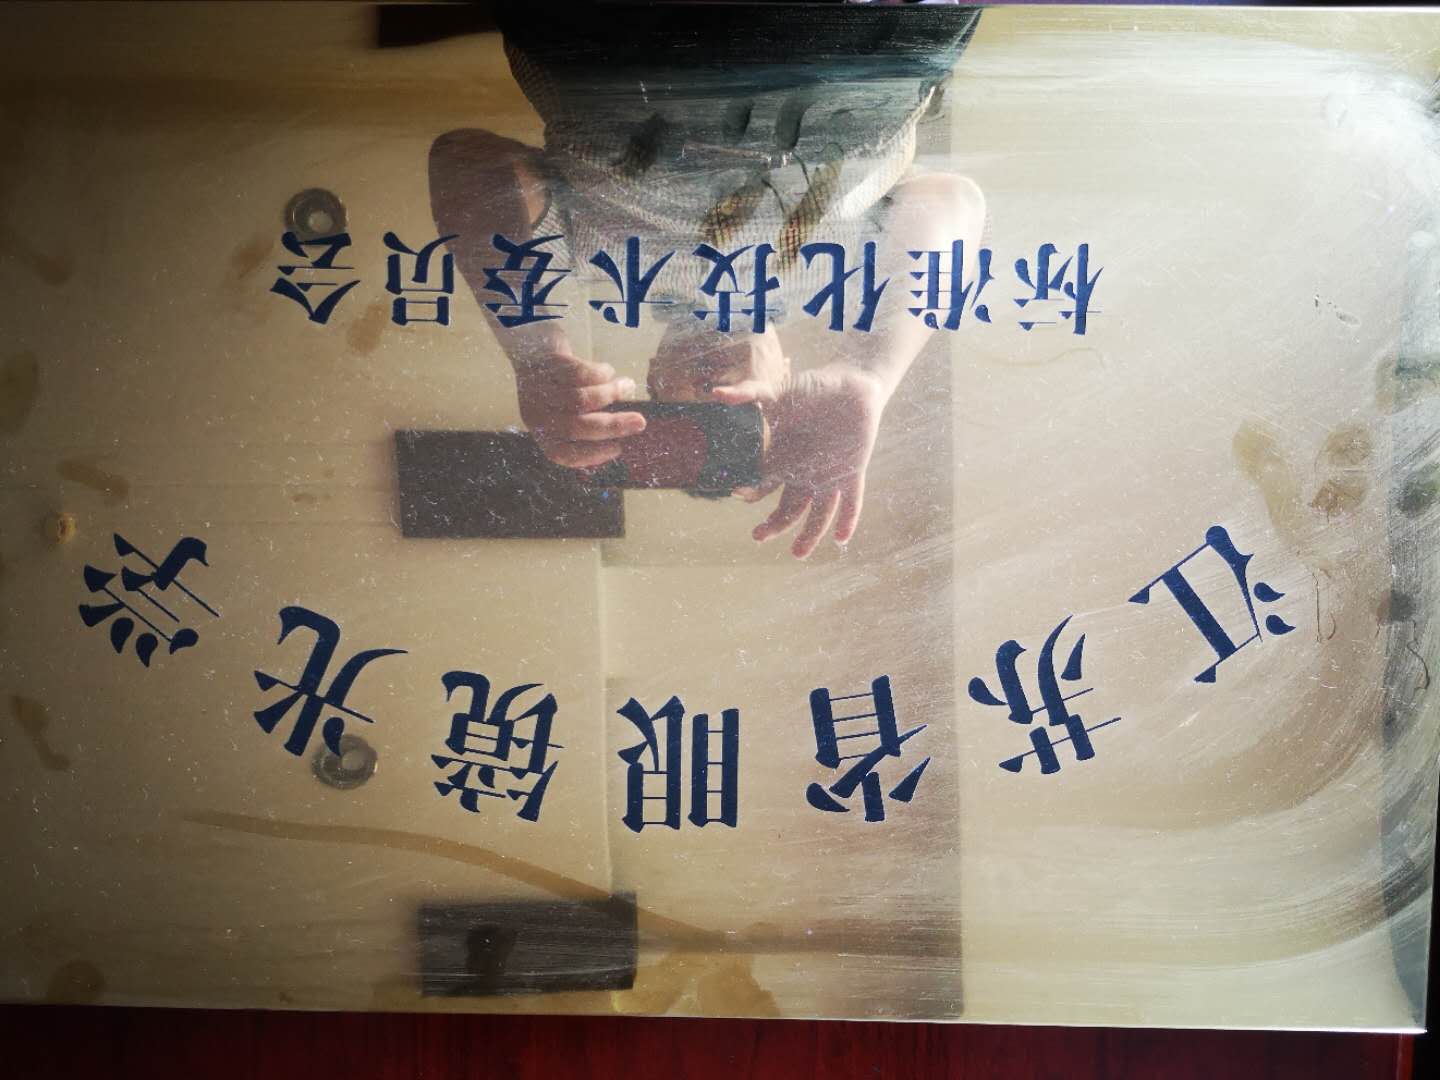 江苏省眼镜光学
标准化技术委员会